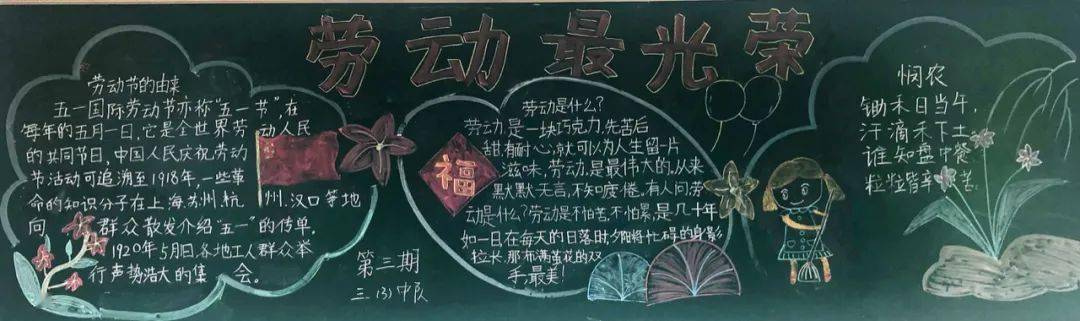 劳动最光荣
劳动节的由来
五一国际劳动节亦称“五一节”,在
每年的五月一日,它是全世界劳动人民
的共同节日,中国人民庆祝劳动
节活动可追溯至1918年,一些革
命的知识分子在上海.苏州.杭州.汉口等地
向群众散发介绍“五一”的传单.
1920年5月1日,各地工人群众举
行声势浩大的集会。
第三期
三.(3)中队
劳动是什么?
劳动,是一块巧克力,先苦后
甜,有耐心,就可以为人生留一片
滋味,劳动,是最伟大的,从来
默默无言,不知疲倦.有人问劳
动是什么?劳动是不怕苦,不怕累,是几十年
如一日在每天的日落时,夕阳将忙碌的身影
拉长,那布满茧花的双
手,最美!
福
悯农
锄禾日当午,
汗滴禾下土,
谁知盘中餐
粒粒皆辛苦